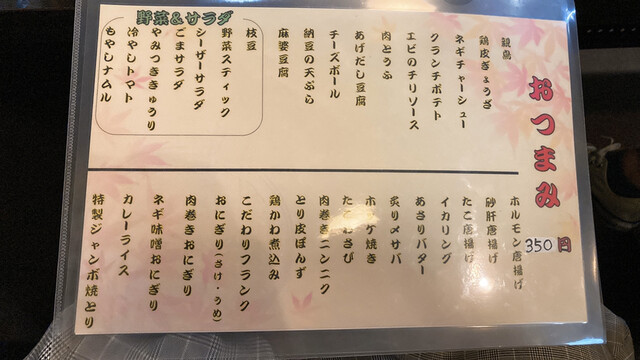 おつまみ
350円
親鳥
鶏皮ぎょうざ
ネギチャーシュー
クランチポテト
エビのチリソース
肉とうふ
あげだし豆腐
チーズボール
納豆の天ぷら
麻婆豆腐
野菜&サラダ
枝豆
野菜スティック
シーザーサラダ
ごまサラダ
やみつききゅうり
冷やしトマト
もやしナムル
ホルモン唐揚げ
砂肝唐揚げ
たこ唐揚げ
イカリング
あさりバター
炙りメサバ
ホッケ焼き
たこわさび
肉巻きニンニク
とり皮ぽんず
鶏かわ煮込み
こだわりフランク
おにぎり(さけ・うめ)
肉巻きおにぎり
ネギ味噌おにぎり
カレーライス
特製ジャンボ焼とり